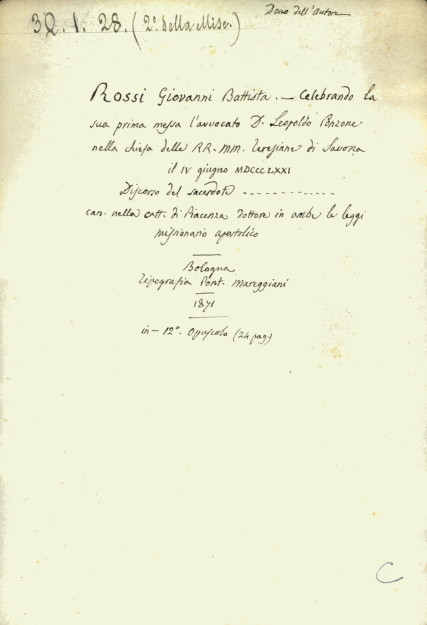 3Q. 1. 28. (2ª della Misc.)
Dono dell'Autore
Rossi Giovanni Battista. — Celebrando la
sua prima messa l'avvocato D. Leopoldo Ponzone
nella chiesa delle RR. MM. Teresiane di Savona
il IV giugno MDCCCLXXI
Discorso del sacerdote - - - - - - - - - - - - -
can. nella catt. di Piacenza dottore in ambe le leggi
missionario apostolico
Bologna
Tipografia Pont. Mareggiani
1871
in-12º. Opuscolo (24 pag)
C